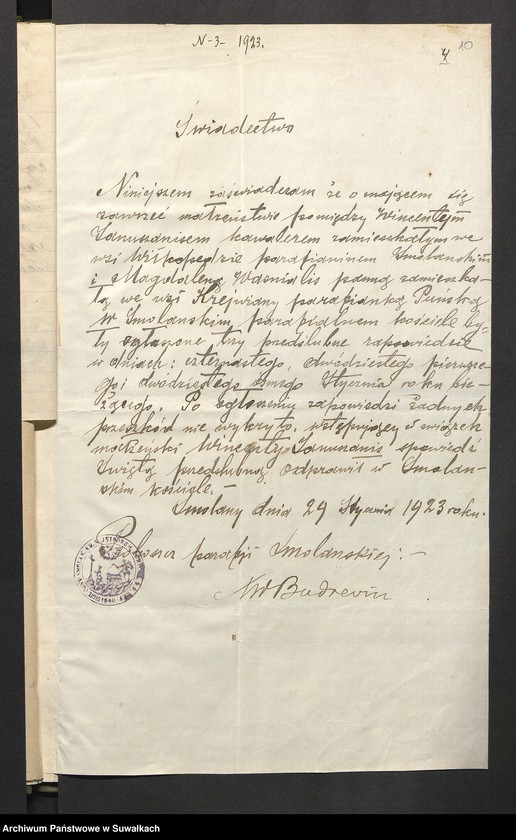 N-3- 1923.
4 10
Świadectwo
Niniejszem zaświadczam że o mającem się
zawrzeć małżeństwie pomiędzy Wincentym
Janunanisem kawalerem zamieszkałym we
wsi Wiłkopędzie parafianinem Smolańskim
i Magdaleną panną zamieszka-
łą we wsi Krejwiany parafianką Puńską
w Smolańskim parafialnem kościele by-
ły ogłoszone trzy przedślubne zapowiedzie
w dniach: czternastego, dwudziestego pierwsze-
go i dwudziestego ósmego Stycznia roku bie-
żącego. Po ogłoszeniu zapowiedzi żadnych
przeszkód nie wykryto. Wstępujący w związek
małżeński Wincenty spowiedź
Świętą przedślubną odprawił w Smolań-
skim kościele. –
Smolany dnia 29 Stycznia 1923 roku.
Proboszcz parafji Smolańskiej: –
Budrevin
Archiwum Państwowe w Suwałkach